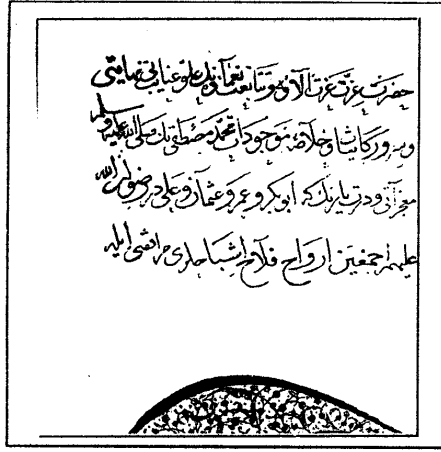 حضرت عزت عزت آلاؤه وتتابعت نعماؤه نك علو عنايتى حمايتى
وسرور كاينات وخلاصهٔ موجودات محمد مصطفى نك صلى الله عليه وسلم
معجزاتى ودرت يارينك كه ابو بكر وعمر وعثمان وعلى در رضوان الله
عليهم اجمعين ارواح فلاح اشباحلرى مرافقتى ايله